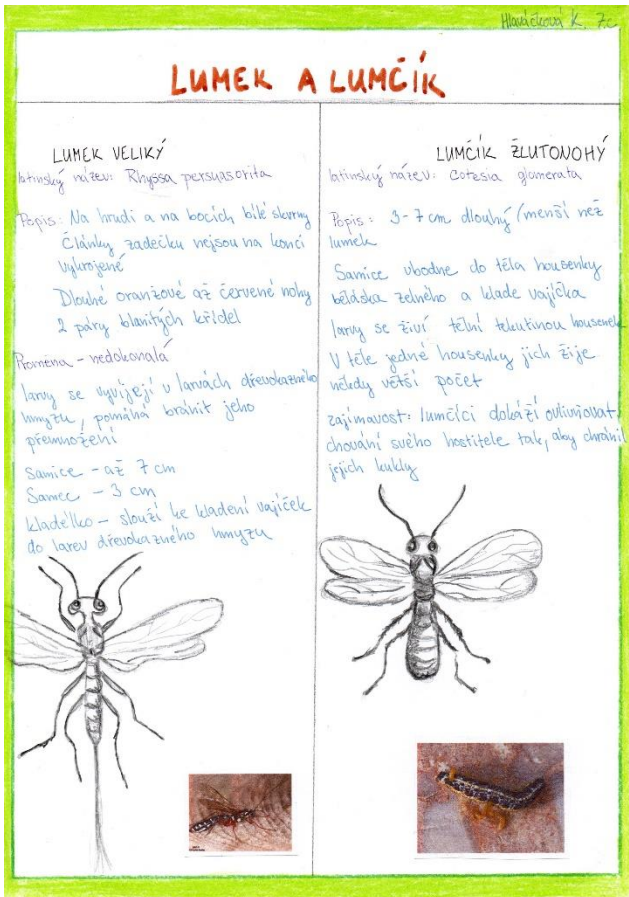 Hlaváčková K. 7.c
LUMEK A LUMČÍK
LUMEK VELIKÝ
latinský název: Rhyssa persuasorita
Popis: Na hrudi a na bocích bílé skvrny
Články zadečku nejsou na konci
vykrojené
Dlouhé oranžové až červené nohy
2 páry blanitých křídel
Proměna - nedokonalá
larvy se vyvíjejí v larvách dřevokazného
hmyzu, pomáhá bránit jeho
přemnožení
Samice - až 7 cm
Samec - 3 cm
kladélko - slouží ke kladení vajíček
do larev dřevokazného hmyzu
LUMČÍK ŽLUTONOHÝ
latinský název: Cotesia glomerata
Popis: 3-7 cm dlouhý /menší než
lumek
Samice ubodne do těla housenky
běláska zelného a klade vajíčka
larvy se živí tělní tekutinou housenek
V těle jedné housenky jich žije
někdy větší počet
zajímavost: lumčíci dokáží ovlivňovat
chování svého hostitele tak, aby chránil
jejich kukly